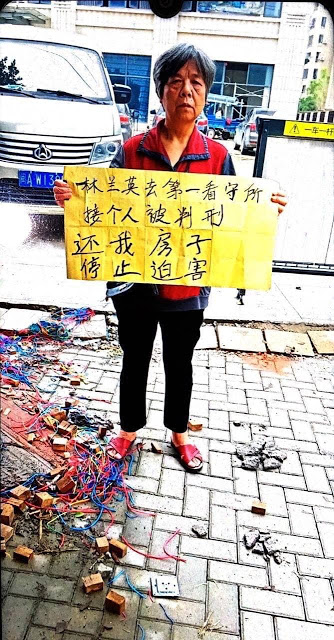 林兰英去第一看守所
接个人被判刑
还我房子
停止迫害
一车一杆